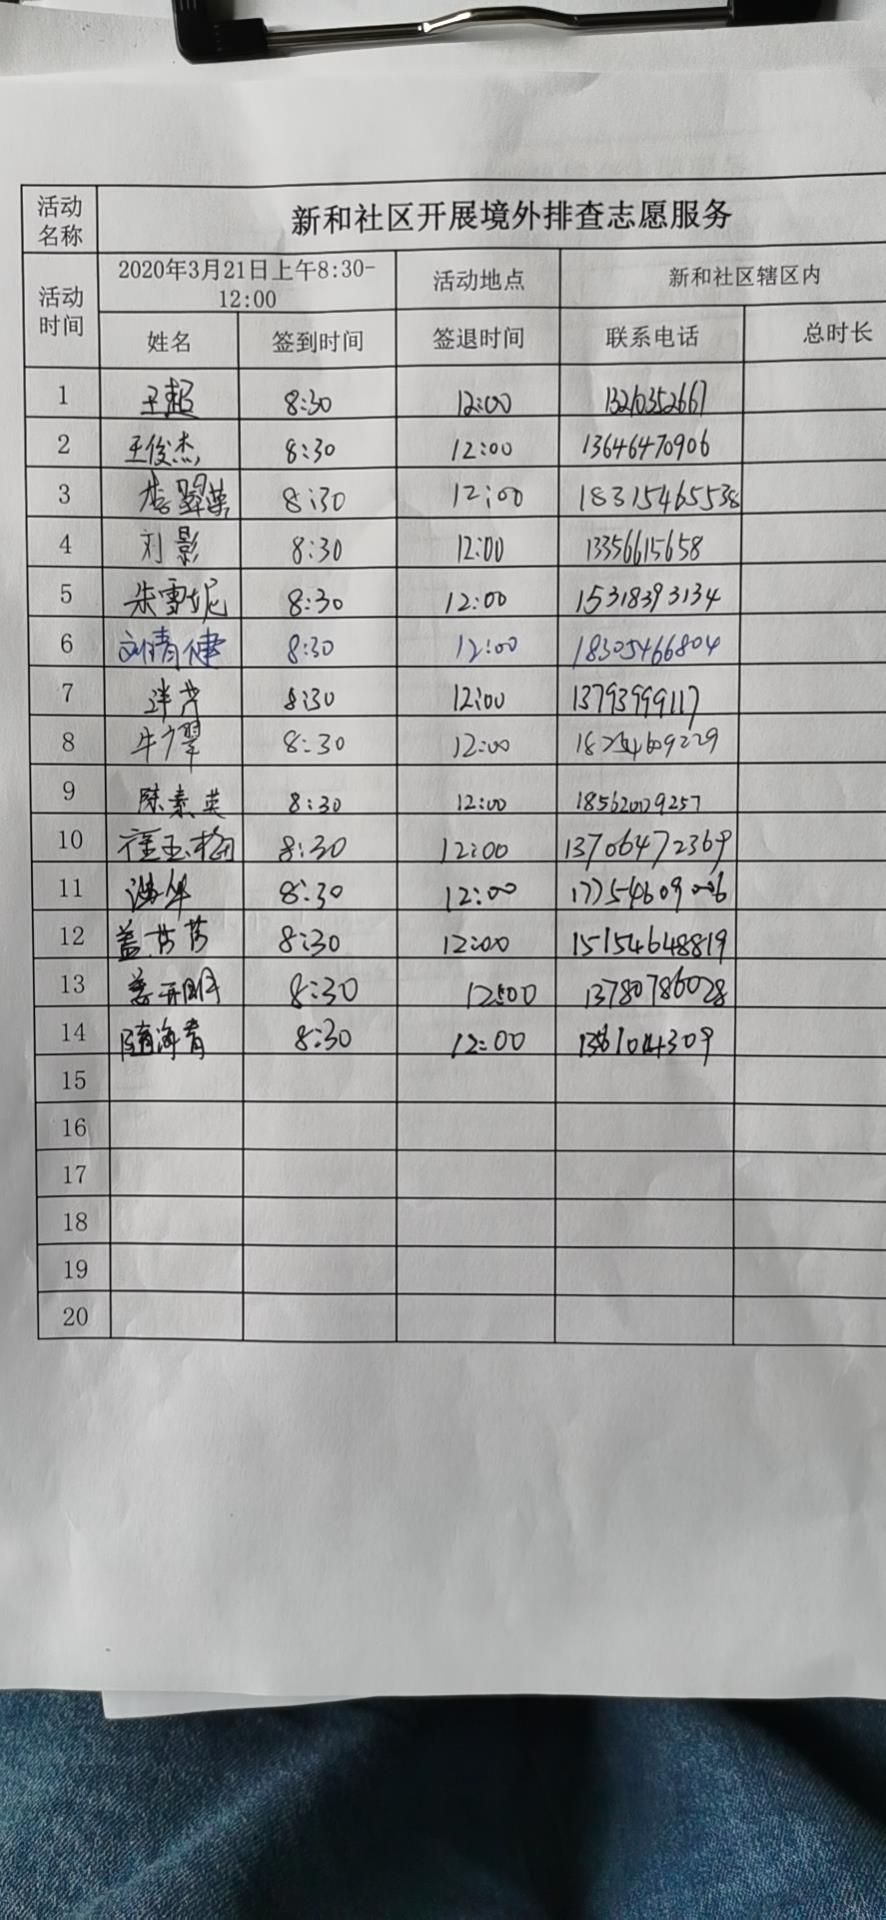 活动名称 新和社区开展境外排查志愿服务
活动时间 2020年3月21日上午8:30-12:00 活动地点 新和社区辖区内
姓名 签到时间 签退时间 联系电话 总时长
1 王超 8:30 12:00 13210352667
2 王俊杰 8:30 12:00 13646470906
3 李翠荣 8:30 12:00 18315465538
4 刘影 8:30 12:00 13356615658
5 朱雪妮 8:30 12:00 15318393134
6 刘清健 8:30 12:00 18305466804
7 8:30 12:00 13793999117
8 牛翠 8:30 12:00 18254609229
9 陈素英 8:30 12:00 18562009257
10 崔玉梅 8:30 12:00 13706472369
11 8:30 12:00
12 盖芳芳 8:30 12:00 15154648819
13 姜开明 8:30 12:00 13780786028
14 隋海青 8:30 12:00
15
16
17
18
19
20